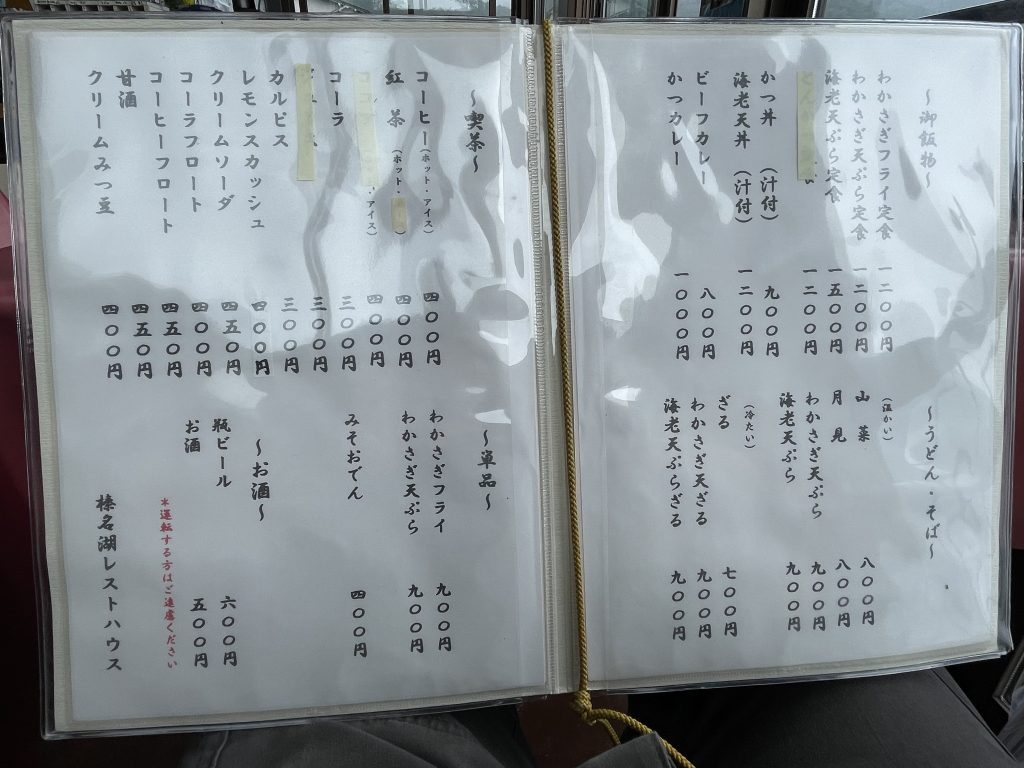 ～御飯物～
わかさぎフライ定食 一二〇〇円
わかさぎ天ぷら定食 一二〇〇円
海老天ぷら定食 一五〇〇円
一二〇〇円
かつ丼 （汁付） 九〇〇円
海老天丼 （汁付） 一二〇〇円
ビーフカレー 八〇〇円
かつカレー 一〇〇〇円
～うどん・そば～
（温かい）
山菜 八〇〇円
月見 八〇〇円
わかさぎ天ぷら 九〇〇円
海老天ぷら 九〇〇円
（冷たい）
ざる 七〇〇円
わかさぎ天ざる 九〇〇円
海老天ぷらざる 九〇〇円
～喫茶～
コーヒー（ホット・アイス） 四〇〇円
紅茶 （ホット・ ） 四〇〇円
・アイス） 四〇〇円
コーラ 三〇〇円
三〇〇円
カルピス 三〇〇円
レモンスカッシュ 四〇〇円
クリームソーダ 四五〇円
コーラフロート 四〇〇円
コーヒーフロート 四五〇円
甘酒 四五〇円
クリームみつ豆 四〇〇円
～単品～
わかさぎフライ 九〇〇円
わかさぎ天ぷら 九〇〇円
みそおでん 四〇〇円
～お酒～
瓶ビール 六〇〇円
お酒 五〇〇円
＊運転する方はご遠慮ください
榛名湖レストハウス